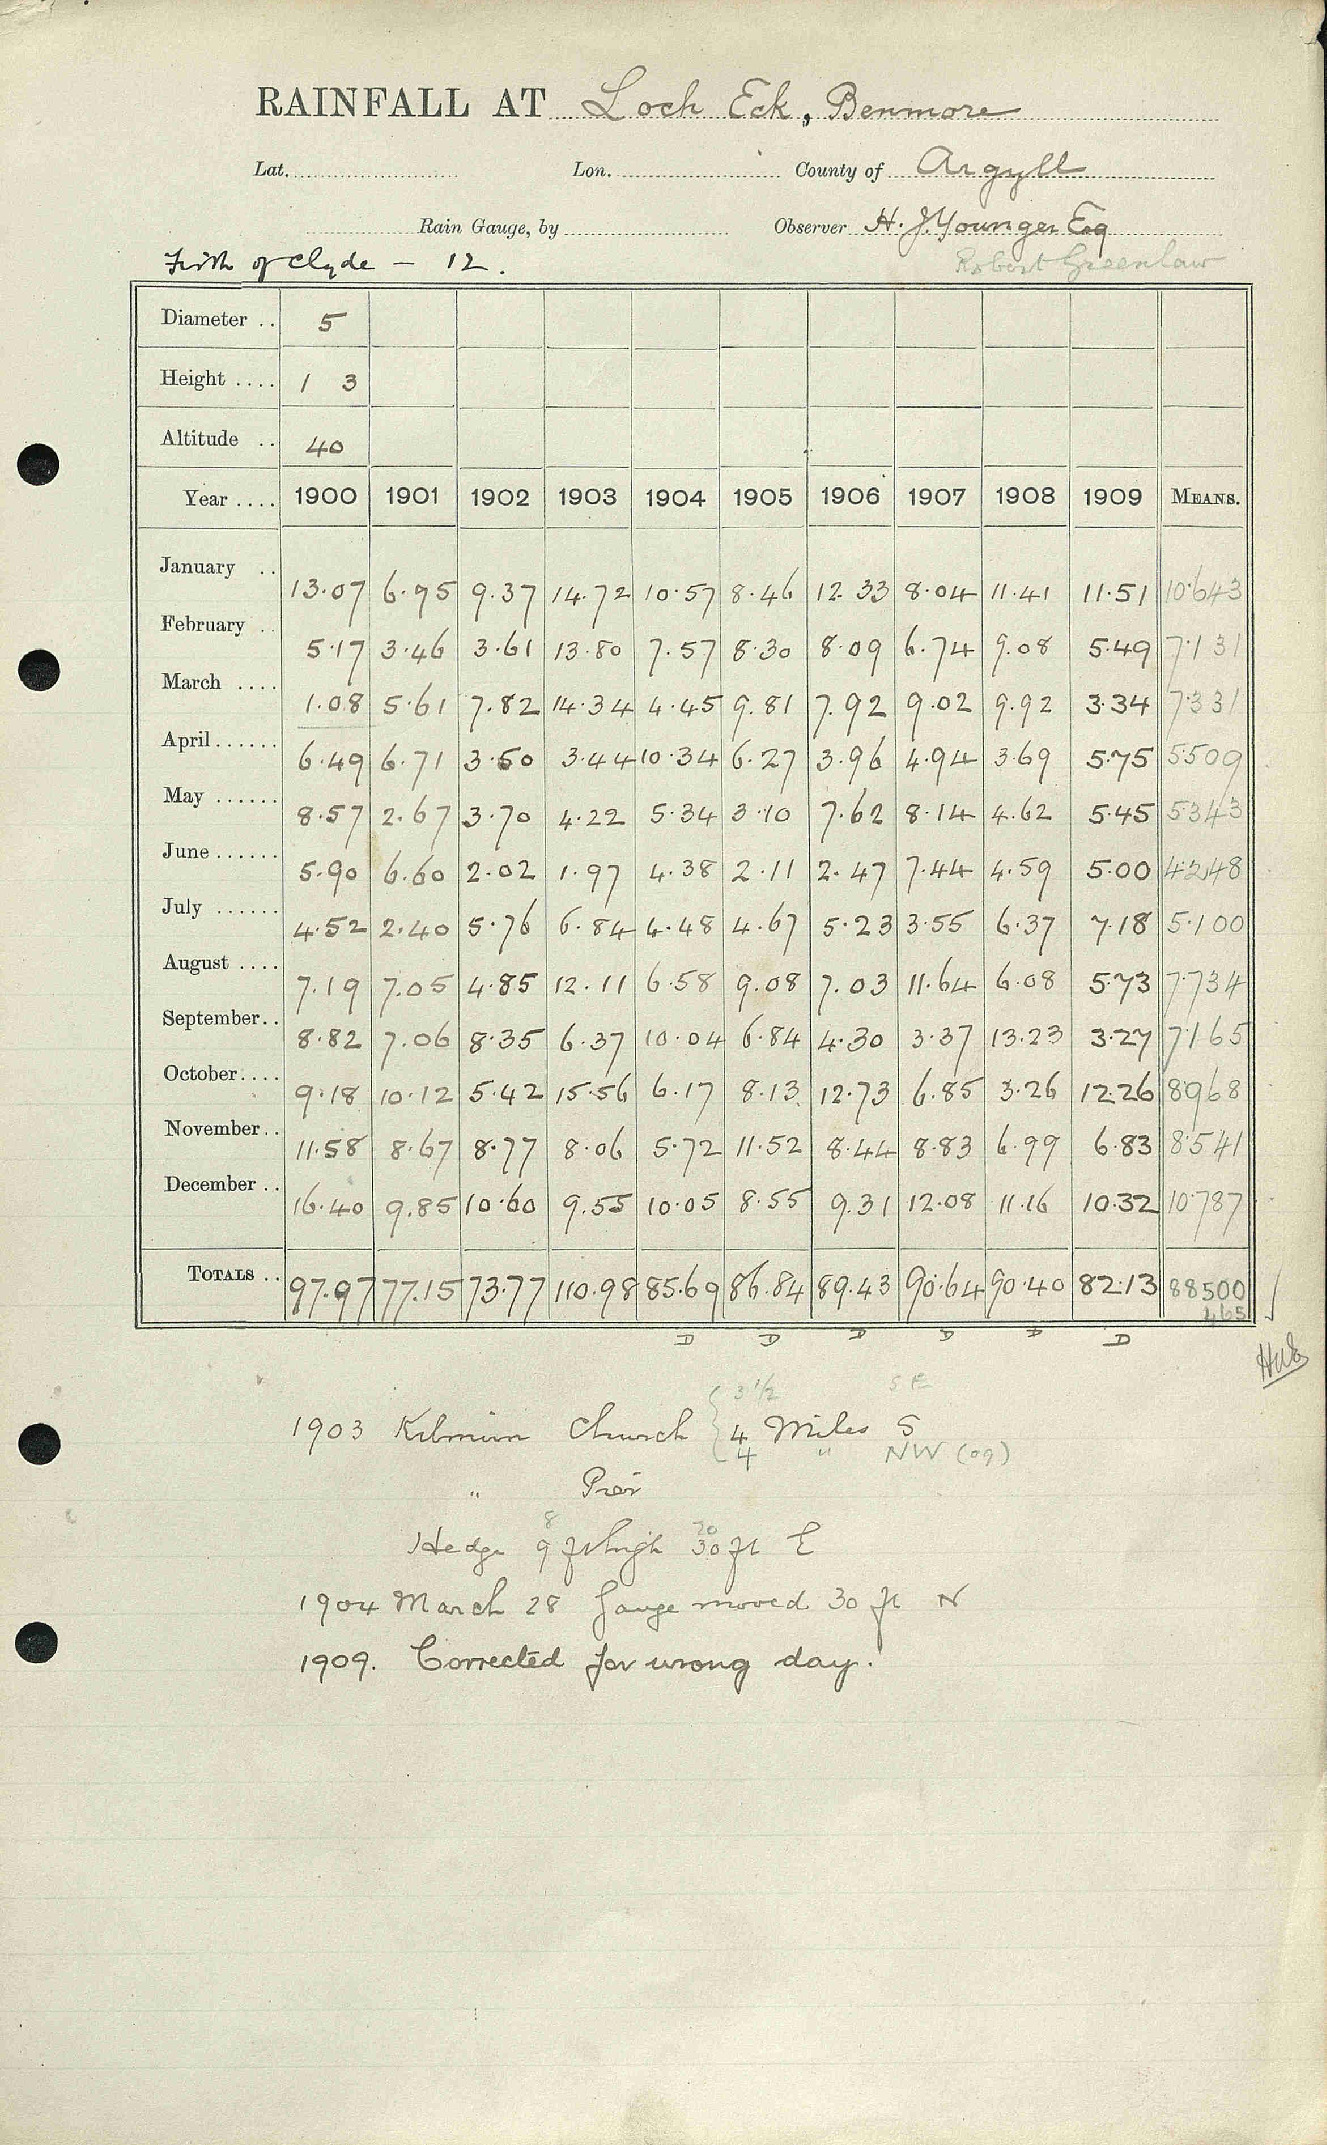 RAINFALL AT Loch Eck, Benmore
Lat. Lon. County of Argyll
Rain Gauge, by Observer H. J. Younger Esq
Firth of Clyde — 12. Robert Greenlaw
Diameter .. 5
Height .... 1 3
Altitude .. 40
Year .... 1900 1901 1902 1903 1904 1905 1906 1907 1908 1909 MEANS.
January .. 13.07 6.95 9.37 14.72 10.57 8.46 12.33 8.04 11.41 11.51 10.643
February .. 5.17 3.46 3.61 13.80 7.57 8.30 8.09 6.74 9.08 5.49 7.131
March .... 1.08 5.61 7.82 14.34 4.45 9.81 7.92 9.02 9.92 3.34 7.331
April...... 6.49 6.71 3.50 3.44 10.34 6.27 3.96 4.94 3.69 5.75 5509
May ...... 8.57 2.67 3.70 4.22 5.34 3.10 7.62 8.14 4.62 5.45 5343
June...... 5.90 6.60 2.02 1.97 4.38 2.11 2.47 7.44 4.59 5.00 4248
July ...... 4.52 2.40 5.76 6.84 4.48 4.67 5.23 3.55 6.37 7.18 5.100
August .... 7.19 7.05 4.85 12.11 6.58 9.08 7.03 11.64 6.08 5.73 7.734
September.. 8.82 7.06 8.35 6.37 10.04 6.84 4.30 3.37 13.23 3.27 7165
October.... 9.18 10.12 5.42 15.56 6.17 8.13 12.73 6.85 3.26 12.26 8968
November.. 11.58 8.67 8.77 8.06 5.72 11.52 8.44 8.83 6.99 6.83 8.541
December .. 16.40 9.85 10.60 9.55 10.05 8.55 9.31 12.08 11.16 10.32 10.787
TOTALS .. 97.97 77.15 73.77 110.98 85.69 86.84 89.43 90.64 90.40 82.13 88500
465
D D D D D D
3 1/2 SE
1903 Kilmun Church 4 Miles S
4 " NW (09)
" Pier
8 20
Hedge 9 ft high 30 ft E
1904 March 28 Gauge moved 30 ft N
1909. Corrected for wrong day.